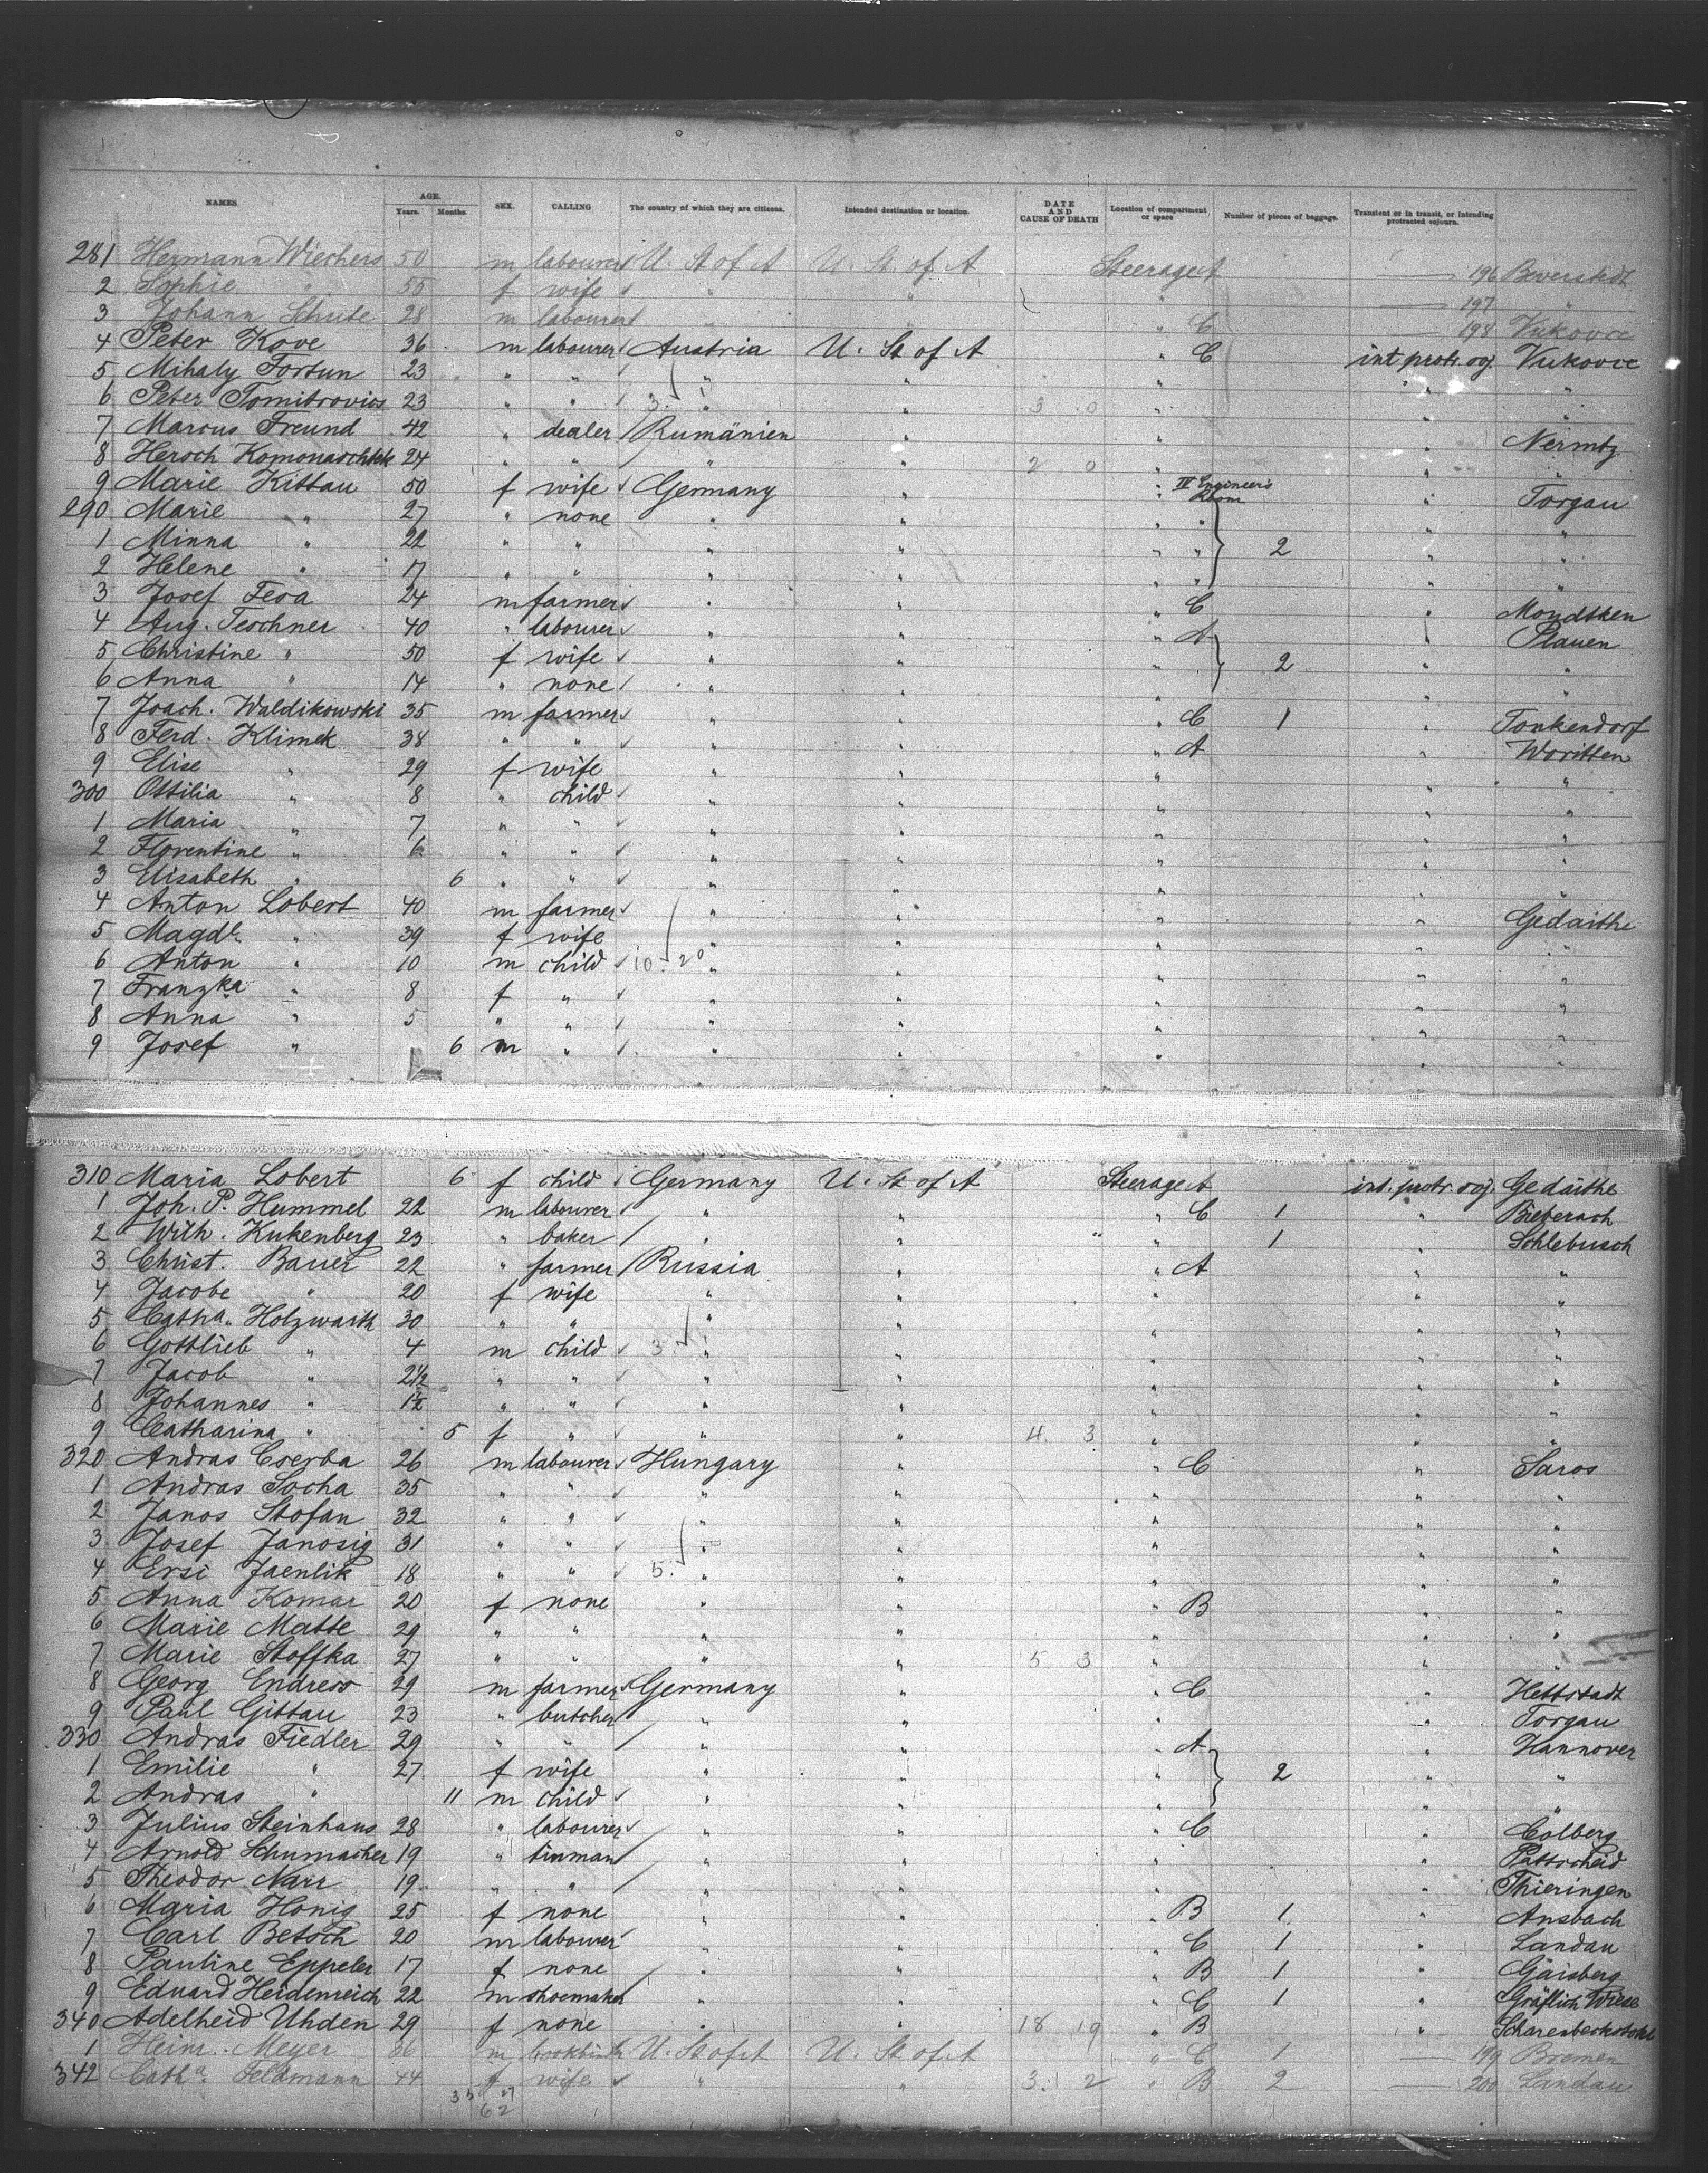 NAMES. AGE. Years. Months. SEX. CALLING The country of which they are citizens. Intended destination or location. DATE AND CAUSE OF DEATH Location of compartment or space Number of pieces of baggage. Transient or in transit, or intending protracted sojourn.
281 Hermann Wiechers 50 m labourer U. St of A U. St. of A Steerage A — 196 Beverstedt
2 Sophie " 55 f wife " " " — 197 "
3 Johann Schute 28 m labourer " " " C — 198
4 Peter Kove 36 m labourer Austria U. St of A " C int protr. sog. Vukovce
5 Mihaly Fortun 23 " " " " " " "
6 Peter Tomitrovics 23 " " 3. " " 3 0 " " "
7 Marcus Freund 42 " dealer Rumänien " " " Nermtz
8 Heroch Komonaschtek 24 " " " " 2 0 " " "
9 Marie Kittau 50 f wife Germany " " IV Engineer's Room " Torgau
290 Marie " 27 " none " " " " " "
1 Minna " 22 " " " " " " 2 " "
2 Helene " 17 " " " " " " " "
3 Josef Fesa 24 m farmer " " " C " Mondtken
4 Aug. Teschner 40 " labourer " " " A " Plauen
5 Christine " 50 f wife " " " 2 " "
6 Anna " 14 " none " " " " "
7 Joach. Waldikowski 35 m farmer " " " C 1 " Tonkendorf
8 Ferd. Klimek 38 " " " " " A " Woritten
9 Elise " 29 f wife " " " " "
300 Ottilia " 8 " child " " " " "
1 Maria " 7 " " " " " " "
2 Florentine " 6 " " " " " " "
3 Elisabeth " 6 " " " " " " "
4 Anton Lobert 40 m farmer " " " " Gedaithe
5 Magdl. " 39 f wife " " " " "
6 Anton " 10 m child 10. 20 " " " " "
7 Franzka " 8 f " " " " " "
8 Anna " 5 " " " " " " "
9 Josef " 6 m " " " " " "
310 Maria Lobert 6 f child Germany U. St of A Steerage A int. protr. sog. Gedäithe
1 Joh. P. Hummel 22 m labourer " " " C 1 " Bieberach
2 Wilh. Kukenberg 23 " baker " " " 1 " Schlebusch
3 Christ. Bauer 22 " farmer Russia " " A " "
4 Jacobe " 20 f wife " " " " "
5 Catha. Holzwarth 30 " " " " " " "
6 Gottlieb " 4 m child 3. " " " " "
7 Jacob " 2½ " " " " " " "
8 Johannes " 1½ " " " " " " "
9 Catharina " 5 f " " " 4. 3 " " "
320 Andras Cserba 26 m labourer Hungary " " C " Saros
1 Andras Socha 35 " " " " " " "
2 Janos Stofan 32 " " " " " " "
3 Josef Janosig 31 " " " " " " "
4 Ersi Jaenlik 18 " " 5. " " " " "
5 Anna Komar 20 f none " " " B " "
6 Marie Matte 29 " " " " " " "
7 Marie Stoffka 27 " " " " 5 3 " " "
8 Georg Endress 29 m farmer Germany " " C " Hettstadt
9 Paul Gittau 23 " butcher " " " " Torgau
330 Andras Fiedler 29 " " " " " A " Hannover
1 Emilie " 27 f wife " " " 2 " "
2 Andras " 11 m child " " " " "
3 Julius Steinhaus 28 " labourer " " " C " Colberg
4 Arnold Schumacher 19 " tinman " " " " Pattscheid
5 Theodor Narr 19 " " " " " " Thieringen
6 Maria Honig 25 f none " " " B 1 " Ansbach
7 Carl Betsch 20 m labourer " " " C 1 " Landau
8 Pauline Eppeler 17 f none " " " B 1 " Gaisberg
9 Eduard Heidenreich 22 m shoemaker " " " C 1 " Gräflich Wiese
340 Adelheid Uhden 29 f none " " 18 19 " B "
1 Heinr. Meyer 36 m bookbinder U. St of A U. St of A " C 1 — 199 Bremen
342 Catha. Feldmann 44 f wife " " 3. 2 " B 2 — 200 Landau
35 27
62